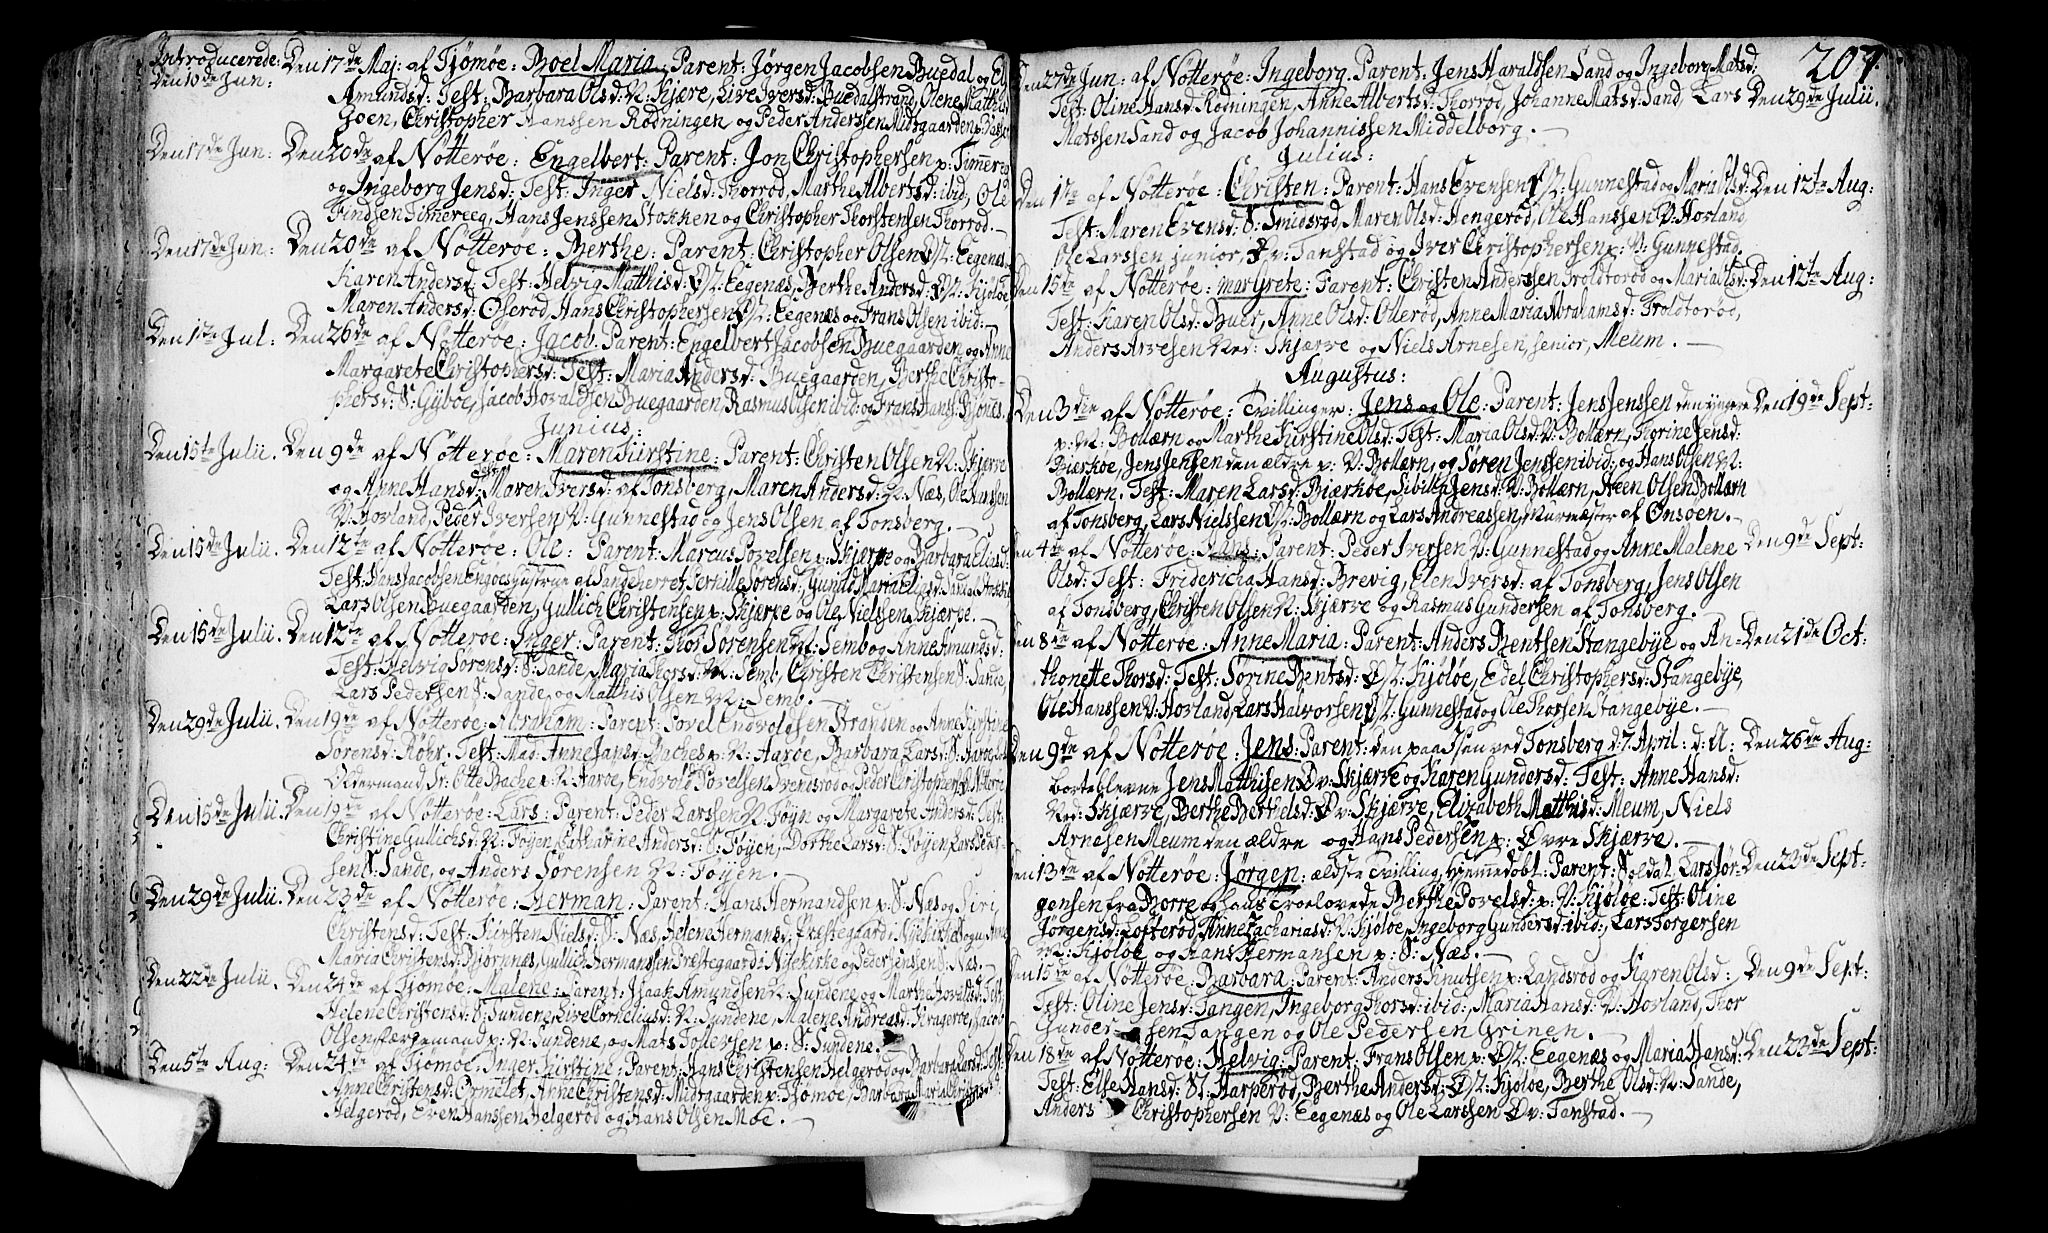 Introducerede: Den 17de Maj: af Tjömöe: Boel Maria: Parent: Jørgen Jacobsen Buedal og El
Den 10de Jun: Amundsd: Test: Barbara Olsd: N: Kjære, Live Iversd: Buedalstrand, Olene Matthisd
Goen, Christopher Hanssen Rødningen og Peder Anderssen Midtgaarden
Den 17de Jun: Den 20de af Nötteröe: Engelbert: Parent: Jon Christophersen p: Timereeg
og Ingeborg Jensd: Test: Inger Nielsd: Thorröd, Marthe Albertsd: ibid, Ole
Findsen Timereeg, Hans Jenssen Stokken og Christopher Thorstensen Thorröd.
Den 17de Jun: Den 20de af Nötteröe: Berthe: Parent: Christopher Olsen Eegenæs
Karen Andersd: Test: Helvig Matthisd: Eegenæs, Berthe Andersd: Kjölöe,
Maren Andersd: Oseröd, Hans Christophersen Eegenæs og Frans Olsen ibid:
Den 1te Jul: Den 26de af Nötteröe: Jacob: Parent: Engelbert Jacobsen Buegaarden og Anne
Margarete Christophersd: Test: Maria Andersd: Buegaarden, Berthe Christo-
phersd: S: Gyböe, Jacob Hovaldsen Buegaarden, Rasmus Olsen ibid: og Frans Hanss: Bjönes.
Junius:
Den 15te Julii. Den 9de af Nötteröe: Maren Kirstine: Parent: Christen Olsen N: Skjerve
og Anne Hansd: Test: Maren Iversd: af Tonsberg, Maren Andersd: N: Næs, Ole Hanssen
V: Hovland, Peder Iversen V: Gunnestad og Jens Olsen af Tonsberg.
Den 15de Julii. Den 12te af Nötteröe: Ole: Parent: Marcus Povelsen p: Skjerve og Barbara Eliasd:
Test: Hans Jacobsen Engöes Hustrue af Sandeherret, Pernille Sörensd:
Lars Olsen Buegaarden, Gullich Christensen p: Skjærve og Ole Nielssen Skjerve.
Den 15de Julii. Den 12te af Nötteröe: Inger: Parent: Thor Sörensen N: Sembo og Anne Amundsd:
Test: Helvig Sörensd: S: Sande, Maria Thorsd: N: Semb, Christen Christensen S: Sande,
Lars Pedersen S: Sande, og Matthis Olsen N: Semb.
Den 29de Julii. Den 19de af Nötteröe: Abraham: Parent: Povel Endvoldsen Stransen og Anne Kirstine
Sorensd: Röhr, Test: Mad: Anne Jansd: Baches p: N: Aaröe, Barbara Larsd: S: Aaröe,
Oldermand Sr: Otte Bache p: N: Aaröe, Endvold Povelsen Svendsröd og Peder Christophersen
Den 15de Julii. Den 19de af Nötteröe: Lars: Parent: Peder Larssen N: Föyn og Margarete Andersd: Test:
Christine Gullichsd: N: Föyen, Catharine Andersd: S: Föyen, Dorthe Larsd: S: Föyen, Lars Peder-
sen S: Sande, og Anders Sörensen N: Föyen.
Den 29de Julii. Den 23de af Nötteröe: Herman: Parent: Hans Hermandsen p: S: Næs og Siri
Christensd: Test: Kirsten Nielsd: S: Næs, Helene Hermansd: Præstegaard i Nykirke Sogn, Anne
Maria Christensd: Bjornnæs, Gullich Hermanssen Præstegaard i Nykirke og Peder Jenssen S: Næs.
Den 22de Julii. Den 24de af Tjomöe: Malene: Parent: Isaak Amundsen N: Sundene og Marthe Hovaldsd: Test:
Helene Christensd: S: Sundene, Live Cornelius d: N: Sundene, Malene Andreasd: Kragerte, Jacob
Olsen Færgemand p: N: Sundene, og Mats Tollevsen p: S: Sundene.
Den 5te Aug: Den 24de af Tjömöe: Inger Kirstine: Parent: Hans Christensen Helgeröd og Barbara Larsd: Test:
Anne Christensd: Ormelet, Anne Christensd: Midtgaarden p: Tjömöe, Barbara Maria Christensd:
Helgeröd, Even Hanssen Helgeröd og Hans Olsen Moe.
207.
Den 27de Jun: af Nötteröe: Ingeborg: Parent: Jens Haraldsen Sand og Ingeborg Matsd:
Test: Oline Hansd: Rödningen, Anne Albertsd: Thorröd, Johanne Matsd: Sand, Lars Den 29de Julii.
Matssen Sand og Jacob Johannissen Middelborg.
Julius:
Den 17de af Nötteröe: Christen: Parent: Hans Evensen Gunnestad og Maria Olsd: Den 12te Aug:
Test: Maren Evensd: S: Smidsröd, Maren Olsd: Hengeröd, Ole Hanssen V: Hovland
Ole Larssen junior, Öv: Tanstad og Iver Christophersen p: V: Gunnestad.
Den 15de af Nötteröe: Margrete: Parent: Christen Anderssen Troldtoröd og Maria Olsd: Den 12te Aug:
Test: Karen Olsd: Buer, Anne Olsd: Olleröd, Anne Maria Abrahamsd: Troldtoröd,
Anders Arvesen Ned: Skjærve og Niels Arnesen, senior, Meum.
Augustus:
Den 3die af Nötteröe: Tvillinger: Jens og Ole: Parent: Jens Jenssen den yngere Den 19de Sept:
p: N: Bollærn og Marthe Kirstine Olsd: Test: Maria Olsd: V: Bollærn, Thorine Jensd:
Bjerköe, Jens Jensen den ældre p: V: Bollærn, og Sören Jenssen ibid: og Hans Olsen N:
Bollærn, Test: Maren Larsd: Bjærköe, Sibilla Jensd: V: Bollærn, Steen Olsen Bollærn
af Tonsberg, Lars Nielssen Bollærn og Lars Andreassen, Murmæster af Onsöen.
Den 4te af Nötteröe: Hans: Parent: Peder Iversen V: Gunnestad og Anne Malene Den 9de Sept:
Olsd: Test: Fridericha Hansd: Brevig, Elen Iversd: af Tonsberg, Jens Olsen
af Tonsberg, Christen Olsen N: Skjærve og Rasmus Gundersen af Tonsberg.
Den 8de af Nötteröe: Anne Maria: Parent: Anders Bentsen Stangebye og An- Den 21de Oct:
thonette Thorsd: Test: Sörine Bentsd: Kjölöe, Edel Christophersd: Stangebye,
Ole Hanssen V: Hovland, Lars Halvorsen Gunnestad og Ole Thorsen Stangebye.
Den 9de af Nötteröe: Jens: Parent: den paa Söen ved Tonsberg d: 7 April: d: A: Den 26de Aug:
bortblevne Jens Matthisen Öv: Skjærve og Karen Gundersd: Test: Anne Hansd:
Ned: Skjærve, Berthe Berthelsd: Öv: Skjærve, Elizabeth Matthisd: Meum, Niels
Arnesen Meum den ældre og Hans Pedersen p: Övre Skjærve.
Den 13de af Nötteröe: Jørgen: ældste Tvilling, Hjemmedöbt: Parent: Soldat Lars Jör- Den 23de Sept:
gensen fra Borre og hans Troelovede Berthe Povelsd: p: V: Kjölöe: Test: Oline
Jørgensd: Lofteröd, Anne Zachariasd: V: Kjölöe, Ingeborg Gundersd: ibid:, Lars Torgersen
V: Kjölöe og Hans Hermansen p: S: Næs.
Den 15de af Nötteröe: Barbara: Parent: Anders Knutsen p: Landsröd og Karen Olsd: Den 9de Sept:
Test: Oline Jensd: Tangen, Ingeborg Thorsd: ibid:, Maria Hansd: V: Hovland, Thor
Gundersen Tangen og Ole Pedersen Grinen.
Den 18de af Nötteröe: Helvig: Parent: Frans Olsen p: Eegenæs og Maria Hansd: Den 23de Sept:
Test: Else Hansd: N: Harperöd, Berthe Andersd: Kjölöe, Berthe Olsd: N: Sande,
Anders Christophersen V: Eegenæs og Ole Larssen Öv: Tanstad.